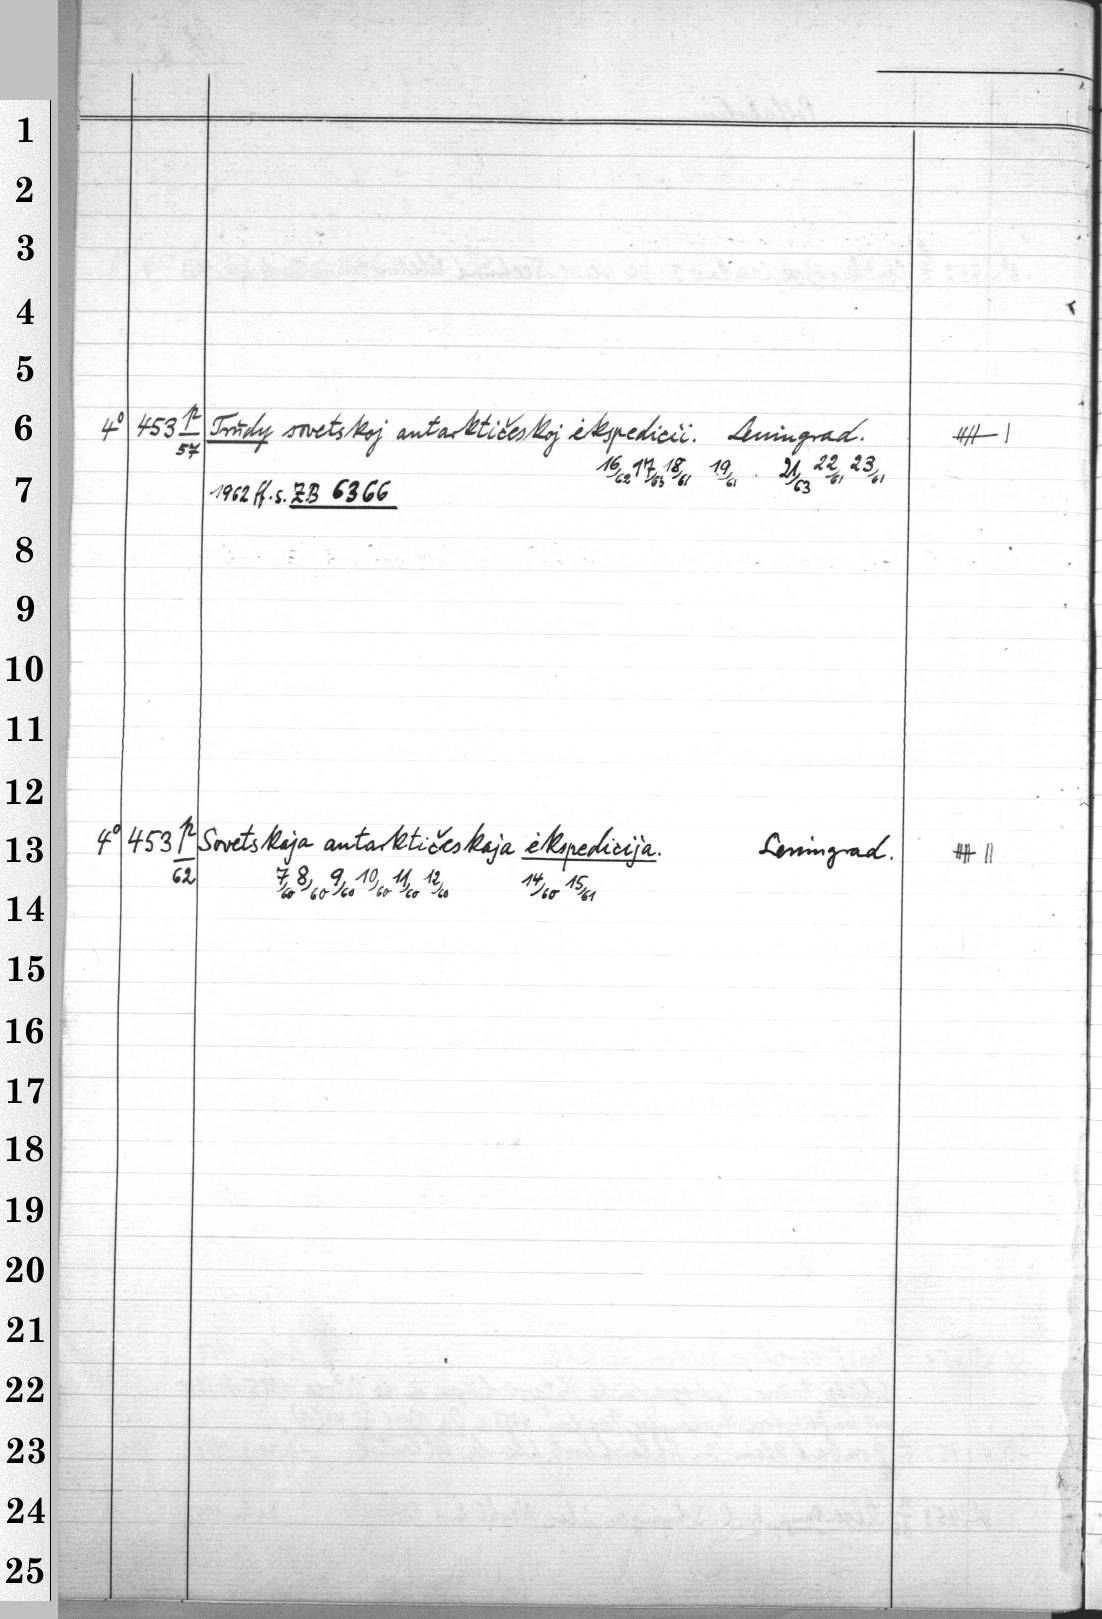 1
2
3
4
5
6
4° 453 p/57 Trudy sovetskoj antarktičeskoj ėkspedicii. Leningrad.
16/62 17/63 18/61 19/61 21/63 22/61 23/61
7
1962 ff. s. ZB 6366
8
9
10
11
12
13
4° 453 p/62 Sovetskaja antarktičeskaja ėkspedicija. Leningrad.
7/60 8/60 9/60 10/60 11/60 12/60 14/60 15/61
14
15
16
17
18
19
20
21
22
23
24
25